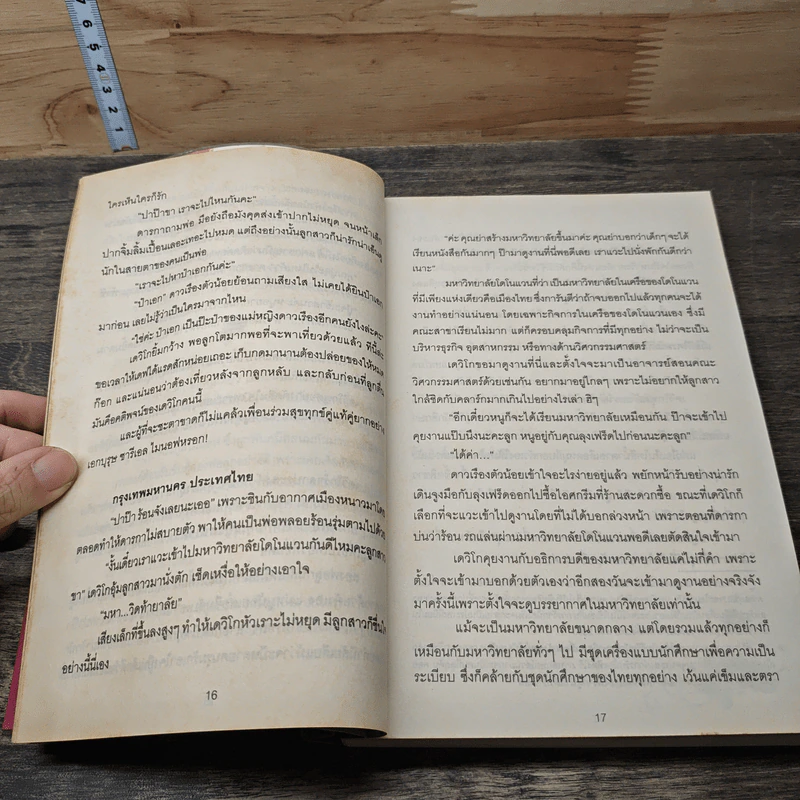 7
6
5
4
3
2
1
ใครเห็นใครก็รัก
"ปาป๊าขา เราจะไปไหนกันคะ"
ดารกาถามพ่อ มือยังถือมังคุดส่งเข้าปากไม่หยุด จนหน้าเล็ก
ปากจิ้มลิ้มเปื้อนเลอะเทอะไปหมด แต่ถึงอย่างนั้นลูกสาวก็น่ารักน่าเอ็นดู
นักในสายตาของคนเป็นพ่อ
"เราจะไปหาป้าเอกกันค่ะ"
"ป้าเอก" ดาวเรืองตัวน้อยย้อนถามเสียงใส ไม่เคยได้ยินป้าเอก
มาก่อน เลยไม่รู้ว่าเป็นใครมาจากไหน
"ใช่ค่ะ ป้าเอก เป็นป๊ะป๋าของแม่หญิงดาวเรืองอีกคนยังไงล่ะคะ"
เดวิโกยิ้มกว้าง พอลูกโตมากพอที่จะพาเที่ยวด้วยแล้ว ทีนี้ละ
ขอเวลาให้เดฟได้แรดสักหน่อยเถอะ เก็บกดมานานต้องปล่อยของให้หมด
ก๊อก และแน่นอนว่าต้องเที่ยวหลังจากลูกหลับ และกลับก่อนที่ลูกตื่น
มันคือคติพจน์ของเดวิโกคนนี้
และผู้ที่จะชะตาขาดก็ไม่แคล้วเพื่อนร่วมสุขทุกข์คู่แท้คู่ยากอย่าง
เอกบุรุษ ชารีเอล ไมนอฟหรอก!
กรุงเทพมหานคร ประเทศไทย
"ปาป๊า ร้อนจังเลยนะเออ" เพราะชินกับอากาศเมืองหนาวมาโดย
ตลอดทำให้ดารกาไม่สบายตัว พาให้คนเป็นพ่อพลอยร้อนรุ่มตามไปด้วย
"งั้นเดี๋ยวเราแวะเข้าไปมหาวิทยาลัยโดโนแวนกันดีไหมคะลูกสาว
ขา" เดวิโกอุ้มลูกสาวมานั่งตัก เช็ดเหงื่อให้อย่างเอาใจ
"มหา...วิดท้ายาลัย"
เสียงเล็กที่ขึ้นลงสูงๆ ทำให้เดวิโกหัวเราะไม่หยุด มีลูกสาวก็ชื่นใจ
อย่างนี้นี่เอง
16
"ค่ะ คุณย่าสร้างมหาวิทยาลัยขึ้นมาค่ะ คุณย่าบอกว่าเด็กๆจะได้
เรียนหนังสือกันมากๆ ป๊ามาดูงานที่นี่พอดีเลย เราแวะไปนั่งพักกันดีกว่า
เนาะ"
มหาวิทยาลัยโดโนแวนที่ว่า เป็นมหาวิทยาลัยในเครือของโดโนแวน
ที่มีเพียงแห่งเดียวคือเมืองไทย ซึ่งการันตีว่าถ้าจบออกไปแล้วทุกคนจะได้
งานทำอย่างแน่นอน โดยเฉพาะกิจการในเครือของโดโนแวนเอง ซึ่งมี
คณะสาขาเรียนไม่มาก แต่ก็ครอบคลุมกิจการที่มีทุกอย่าง ไม่ว่าจะเป็น
บริหารธุรกิจ อุตสาหกรรม หรือทางด้านวิศวกรรมศาสตร์
เดวิโกขอมาดูงานที่นี่และตั้งใจจะมาเป็นอาจารย์สอนคณะ
วิศวกรรมศาสตร์ด้วยเช่นกัน อยากมาอยู่ใกลๆ เพราะไม่อยากให้ลูกสาว
ใกล้ชิดกับคลาร์กมากเกินไปอย่างไรเล่า ฮิๆ
"อีกเดี๋ยวหนูก็จะได้เรียนมหาวิทยาลัยเหมือนกัน ป๊าจะเข้าไป
คุยงานแป๊บนึงนะคะลูก หนูอยู่กับคุณลุงเฟร็ดไปก่อนนะคะลูก"
"ได้ค่า..."
ดาวเรืองตัวน้อยเข้าใจอะไรง่ายอยู่แล้ว พยักหน้ารับอย่างน่ารัก
เดินจูงมือกับลุงเฟร็ดออกไปซื้อไอศกรีมที่ร้านสะดวกซื้อ ขณะที่เดวิโกก็
เลือกที่จะแวะเข้าไปดูงานโดยที่ไม่ได้บอกล่วงหน้า เพราะตอนที่ดารกา
บ่นว่าร้อน รถแล่นผ่านมหาวิทยาลัยโดโนแวนพอดีเลยตัดสินใจเข้ามา
เดวิโกคุยงานกับอธิการบดีของมหาวิทยาลัยแค่ไม่กี่คำ เพราะ
ตั้งใจจะเข้ามาบอกด้วยตัวเองว่าอีกสองวันจะเข้ามาดูงานอย่างจริงจัง
มาครั้งนี้เพราะตั้งใจจะดูบรรยากาศในมหาวิทยาลัยเท่านั้น
แม้จะเป็นมหาวิทยาลัยขนาดกลาง แต่โดยรวมแล้วทุกอย่างก็
เหมือนกับมหาวิทยาลัยทั่วๆ ไป มีชุดเครื่องแบบนักศึกษาเพื่อความเป็น
ระเบียบ ซึ่งก็คล้ายกับชุดนักศึกษาของไทยทุกอย่าง เว้นแค่เข็มและตรา
17